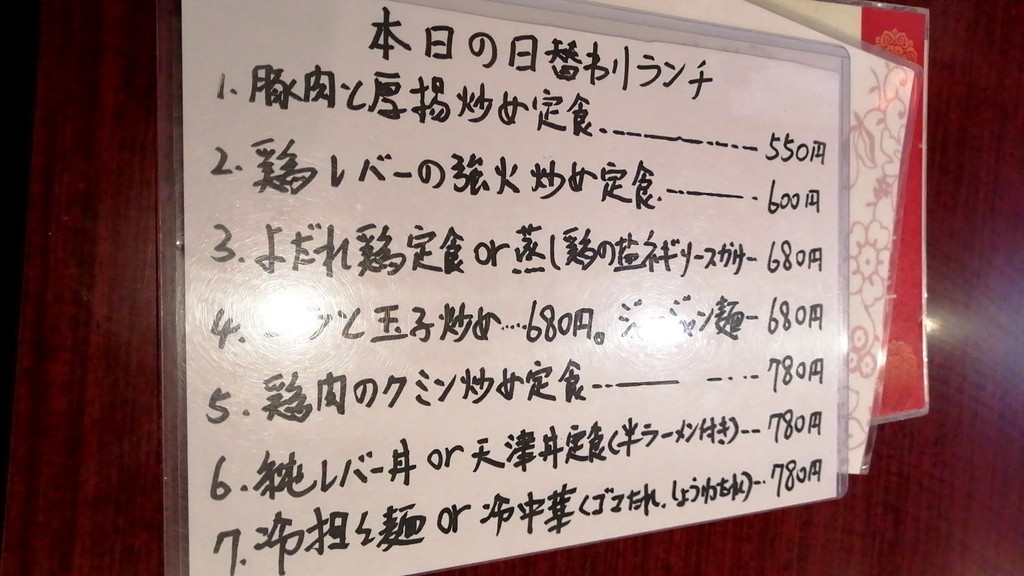 本日の日替わりランチ
1. 豚肉と厚揚炒め定食 550円
2. 鶏レバーの強火炒め定食 600円
3. よだれ鶏定食or蒸し鶏の塩ネギソースがけ 680円
4. と玉子炒め…680円。ジャージャン麺 680円
5. 鶏肉のクミン炒め定食 780円
6. 純レバー丼 or 天津丼定食(半ラーメン付き) 780円
7. 冷担々麺 or 冷中華(ゴマだれ、しょうゆだれ) 780円